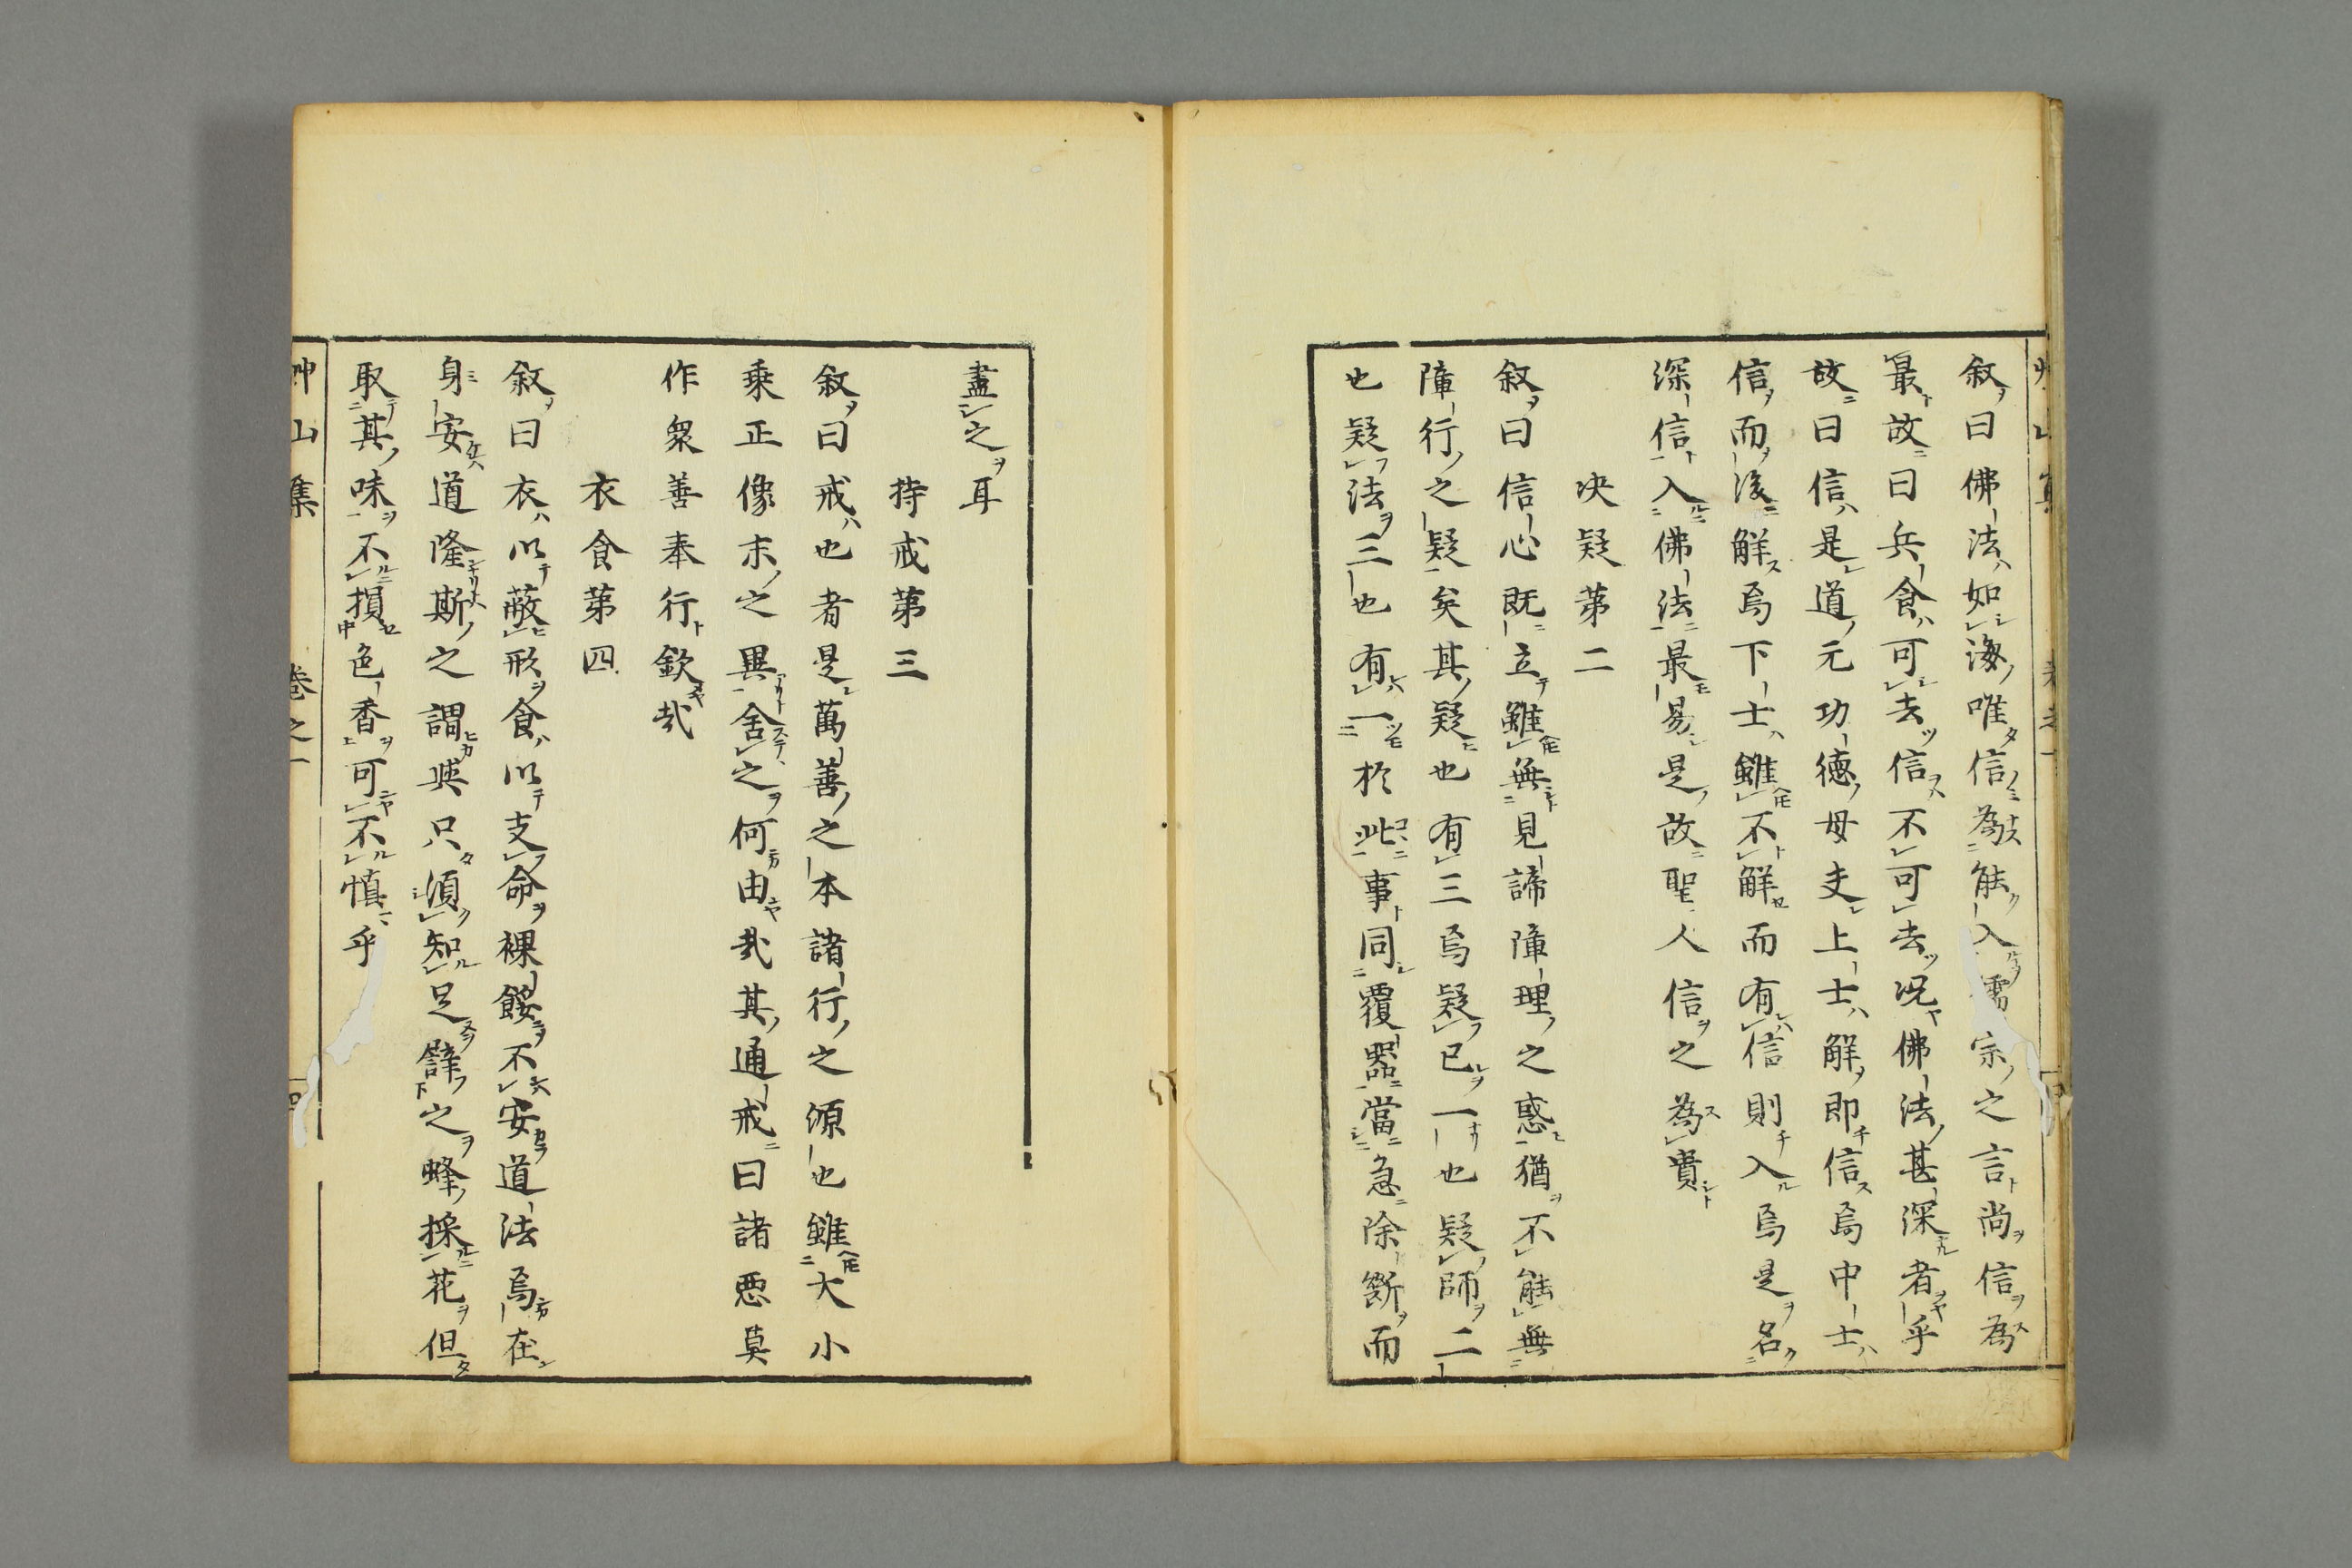 叙曰佛法如海唯信為能入儒宗之言尚信為
最故曰兵食可去信不可去况佛法甚深者乎
故曰信是道元功德母夫上士解即信焉中士
信而後解焉下士雖不解而有信則入焉是名
深信入佛法最易是故聖人信之為貴
决疑第二
叙曰信心既立雖無見諦障理之惑猶不能無
障行之疑矣其疑也有三焉疑已一也疑師二
也疑法三也有一於此事同覆器當急除斷而
盡之耳
持戒第三
叙曰戒也者是萬善之本諸行之源也雖大小
乗正像末之異舍之何由哉其通戒曰諸悪莫
作衆善奉行欽哉
衣食第四
叙曰衣以蔽形食以支命裸餒不安道法焉在
身安道隆斯之謂歟只須知足譬之蜂採花但
取其味不損色香可不慎乎
艸山集 卷之一